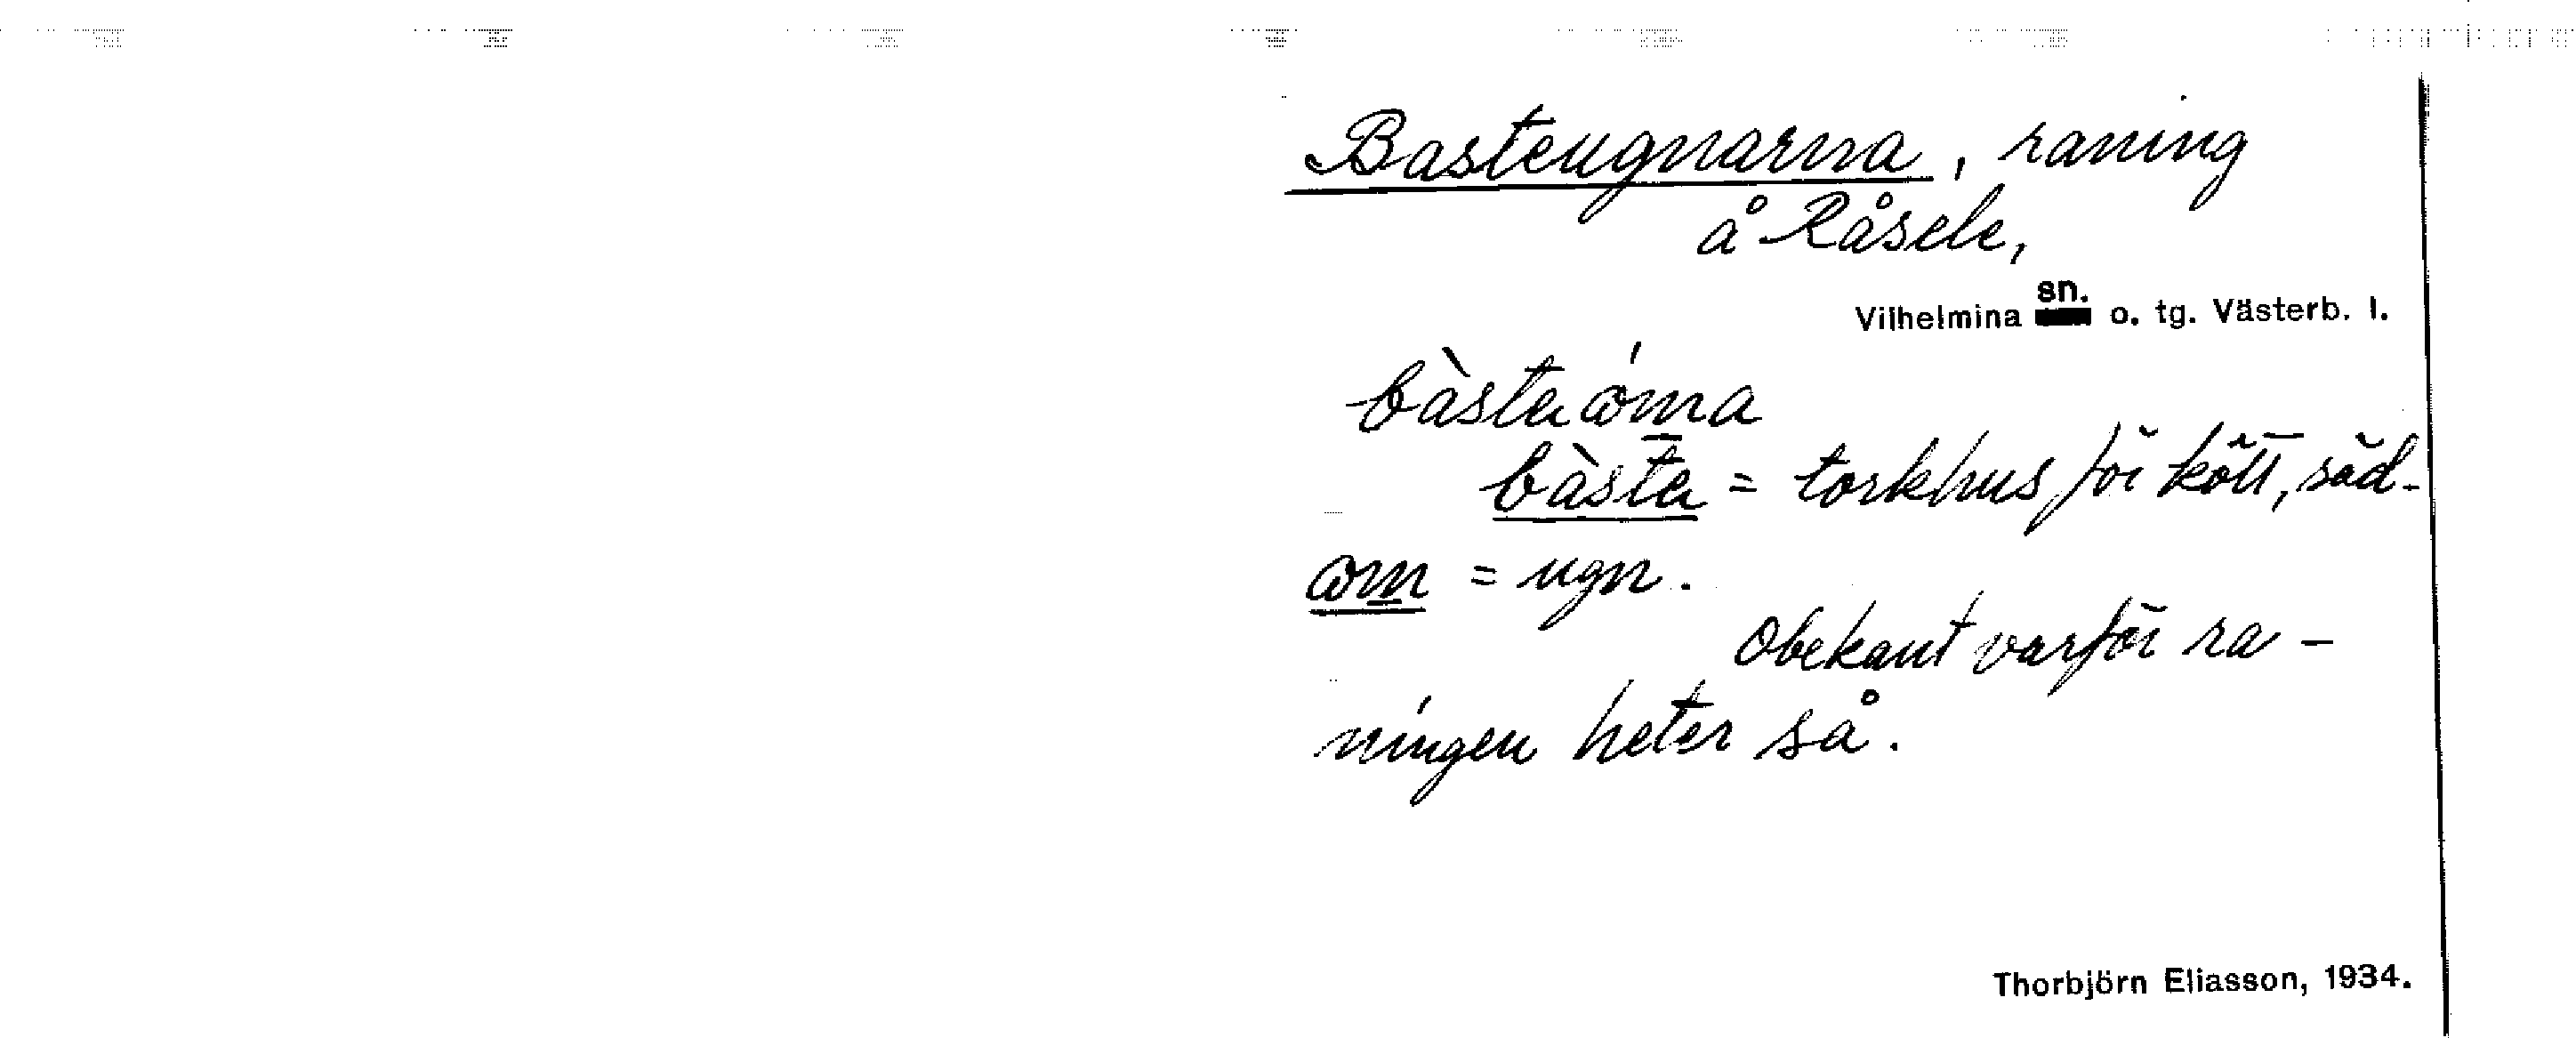 Basteugnarna, raning
å Råsele,
Vilhelmina sn. o. tg. Västerb. l.
bàsta ómna
bàsta = torkhus för kött, säd.
om = ugn.
Obekant varför ra-
ningen heter så.
Thorbjörn Eliasson, 1934.